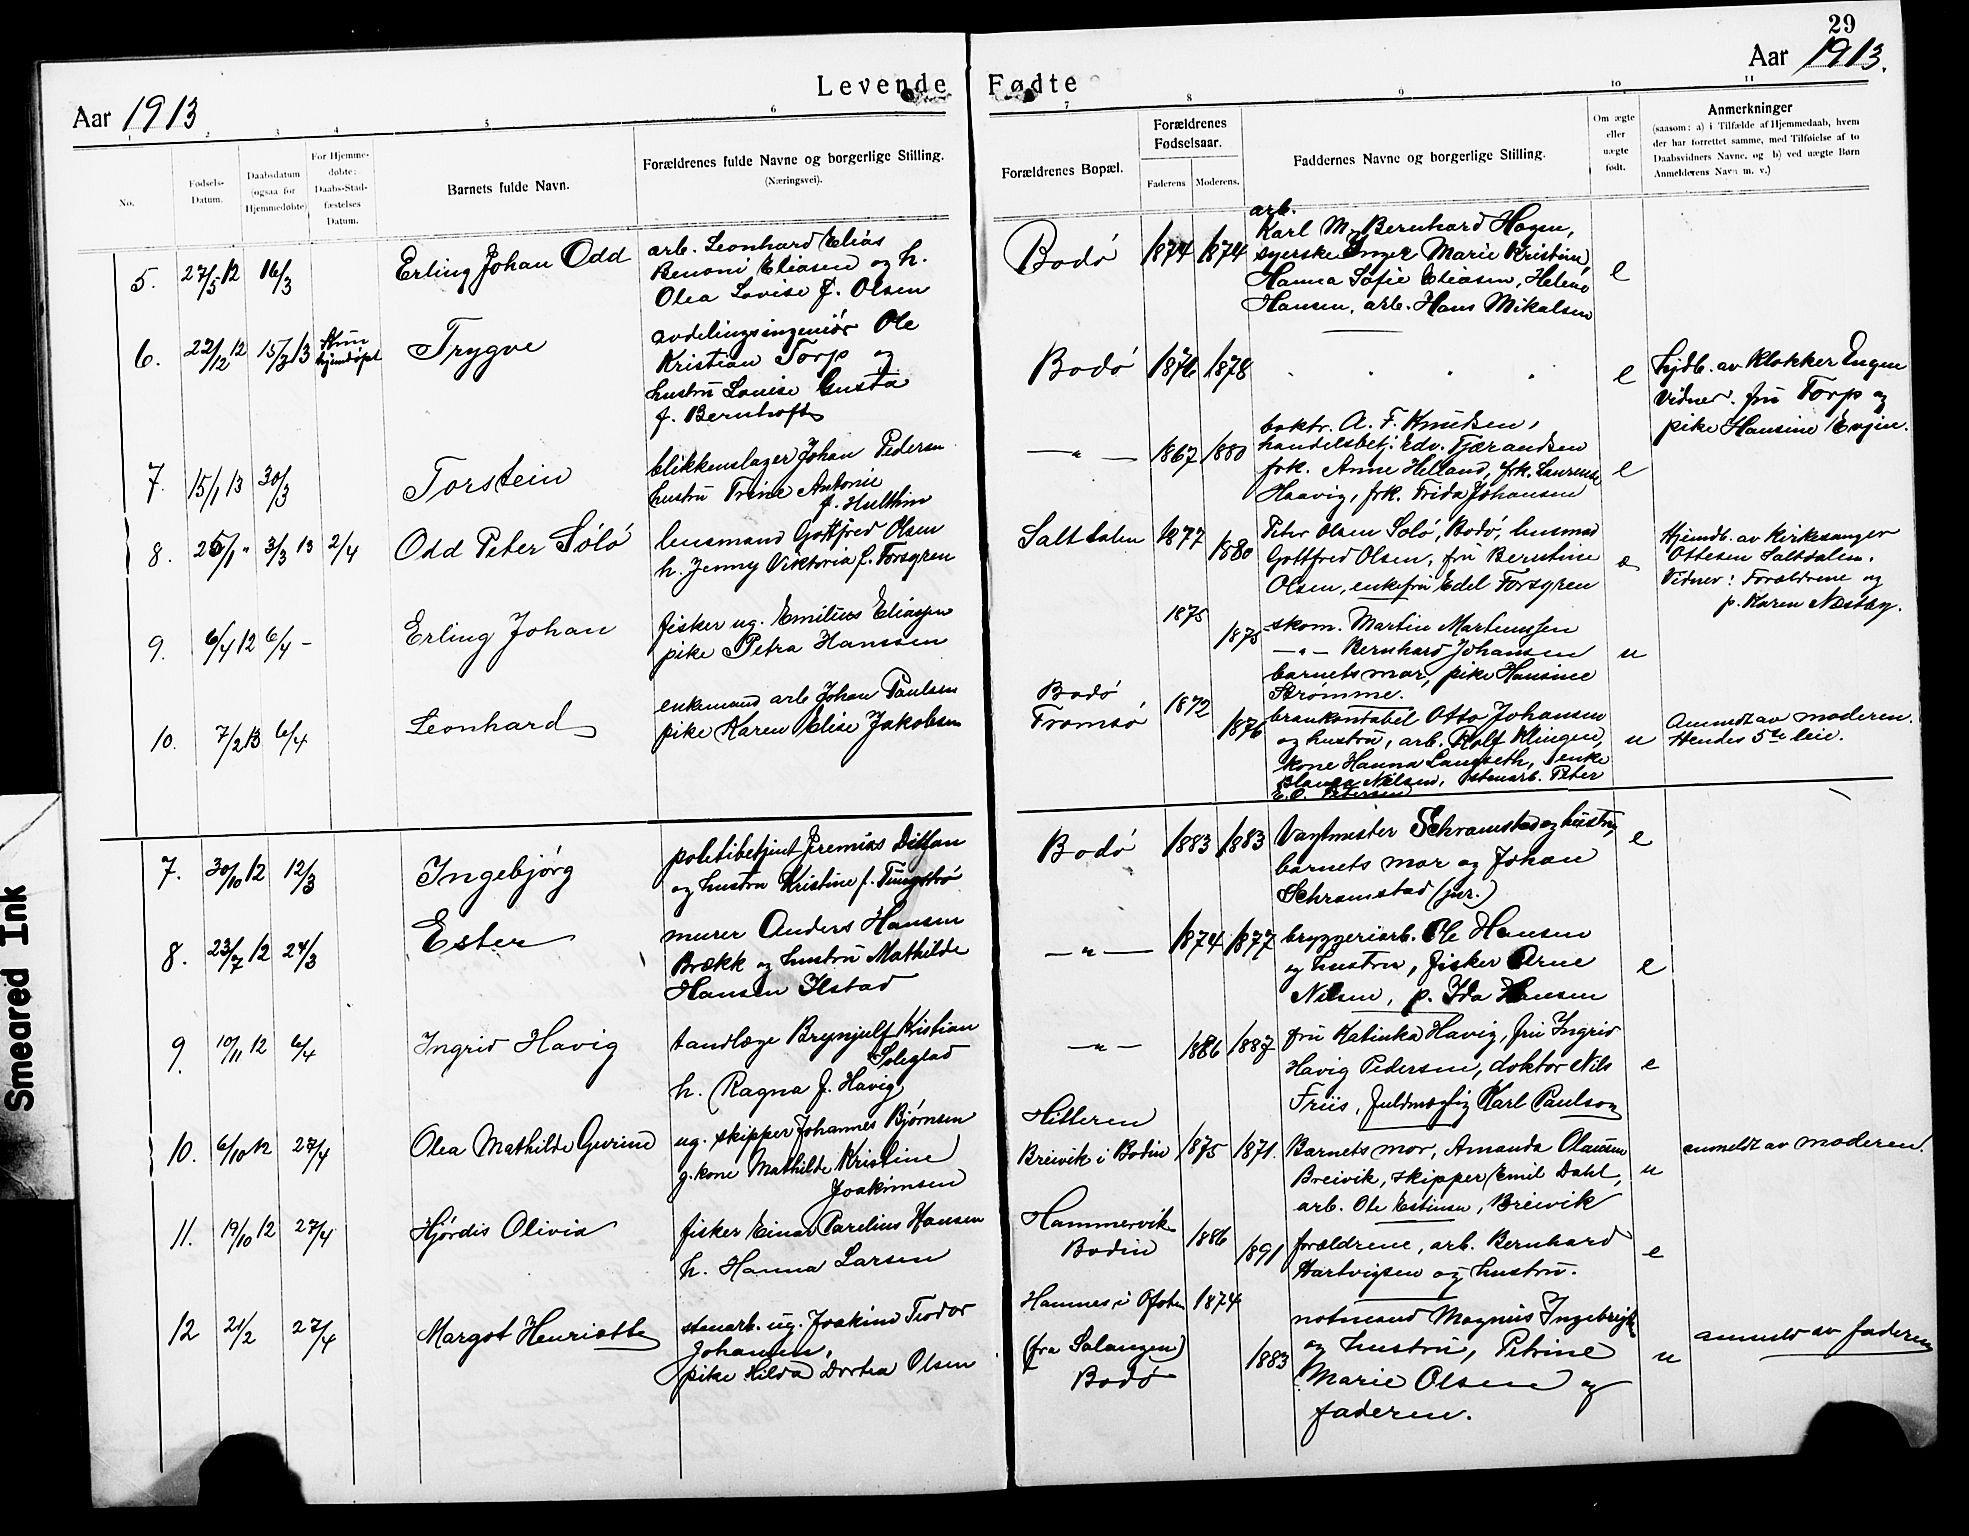 29
Aar 1913
Levende Fødte
Aar 1913.
1 2 3 4 5 6 7 8 9 10 11
No.
Fødsels-
Datum.
Daabsdatum
(ogsaa for
Hjemmedøbte)
For Hjemme-
døbte:
Daabs-Stad-
fæstelses
Datum.
Barnets fulde Navn.
Forældrenes fulde Navne og borgerlige Stilling.
(Næringsvei).
Forældrenes Bopæl.
Forældrenes
Fødselsaar.
Faderens Moderens.
Faddernes Navne og borgerlige Stilling.
Om ægte
eller
uægte
født.
Anmerkninger
(saasom: a) i Tilfælde af Hjemmedaab, hvem
der har forrettet samme, med Tilføielse af to
Daabsvidners Navne, og b) ved uægte Børn
Anmelderens Navn m. v.)
5. 27/5 12 16/3
Erling Johan Odd
arb. Leonhard Elias
Benoni Eliasen og h.
Olea Lovise f. Olsen
Bodø 1874 1874
arb.
Karl M. Bernhard Hagen,
syerske Inger Marie Kristine,
Hanna Sofie Eliasen, Helene
Hansen, arb. Hans Mikalsen
e
6. 22/12 12 15/3 13
Kun
hjemdøpt
Trygve
avdelingsingeniør Ole
Kristian Torp og
hustru Louise Gusta
f. Bernhoft
Bodø 1876 1878
e
Hjdb. av klokker Engen
Vidner. fru Torp og
pike Hansine Evjen.
7. 15/1 13 30/3
Torstein
blikkenslager Johan Pedersen
hustru Trine Antonie
f. Hulthin
— " — 1867 1880
boktr. A. F. Knudsen,
handelsbetj. Edv. Tjærandsen
frk. Anne Helland, frk. Laurense
Haavig, frk. Frida Johansen
e
8. 25/1 " 3/3 13 2/4
Odd Peter Sølø
lensmand Gottfred Olsen
h. Jenny Viktoria f. Forsgren
Saltdalen 1877 1880
Peter Olsen Solø, Bodø, lensmand
Gottfred Olsen, fru Berntine
Olsen, enkefru Edel Forsgren
e
Hjemdb. av kirkesanger
Ottesen Saltdalen.
Vidner: Forældrene og
p. Karen Næstby.
9. 6/4 12 6/4 –
Erling Johan
fisker ug. Emilius Eliassen
pike Petra Hanssen
1875 1875
skom. Martin Martinussen
— " — Bernhard Johansen
barnets mor, pike Hansine
Strømme.
u
10. 7/2 13 6/4
Leonhard
enkemand arb Johan Paulsen
pike Karen Elise Jakobsen
Bodø
Tromsø 1872 1876
brankonstabel Otto Johansen
og hustru, arb. Rolf Klingen,
kone Hanna Langseth, enke
Nilsen, stenarb. Peter
Petersen
u
Anmeldt av moderen.
Hendes 5te leie.
7. 30/10 12 12/3
Ingebjørg
politibetjent Jeremias
og hustru Kristine f.
Bodø 1883 1883
Vagtmester Schramstad og hustru
barnets mor og Johan
Schramstad (jnr.)
e
8. 23/7 12 24/3
Ester
murer Anders Hansen
Brækk og hustru Mathilde
Hansen Ilstad
— " — 1874 1877
bryggeriarb. Ole Hansen
og hustru, fisker Arne
Nilsen, p. Ida Hansen
e
9. 10/11 12 6/4
Ingrid Havig
tandlæge Brynjulf Kristian
Soleglad
h. Ragna f. Havig
— " — 1886 1887
fru Katinka Havig, fru Ingrid
Havig Pedersen, doktor Nils
Friis, fuldmægtig Karl Paulson
e
10. 6/10 12 27/4
Olea Mathilde Gurine
ug. skipper Johannes Bjørnsen
g. kone Mathilde Kristine
Joakimsen
Hitteren
Breivik i Bodin 1875 1871.
Barnets mor, Amanda Olaussen
Breivik, skipper Emil Dahl,
arb. Ole Estinsen, Breivik
u
anmeldt av moderen.
11. 19/10 12 27/4
Hjørdis Olivia
fisker Einar Parelius Hansen
h. Hanna Larsen
Hammervik
Bodin 1886 1891
forældrene, arb. Bernhard
Hartvigsen og hustru.
e
12 21/2 27/4
Margot Henriette
stenarb. ug. Joakim Teodor
Johansen,
pike Hilda Dortea Olsen
Hamnes i Ofoten 1874
(fra Salangen)
Bodø 1883
notmand Magnus Ingebrigts
og hustru, Petrine
Marie Olsen og
faderen.
u
anmeldt av faderen
Smeared Ink